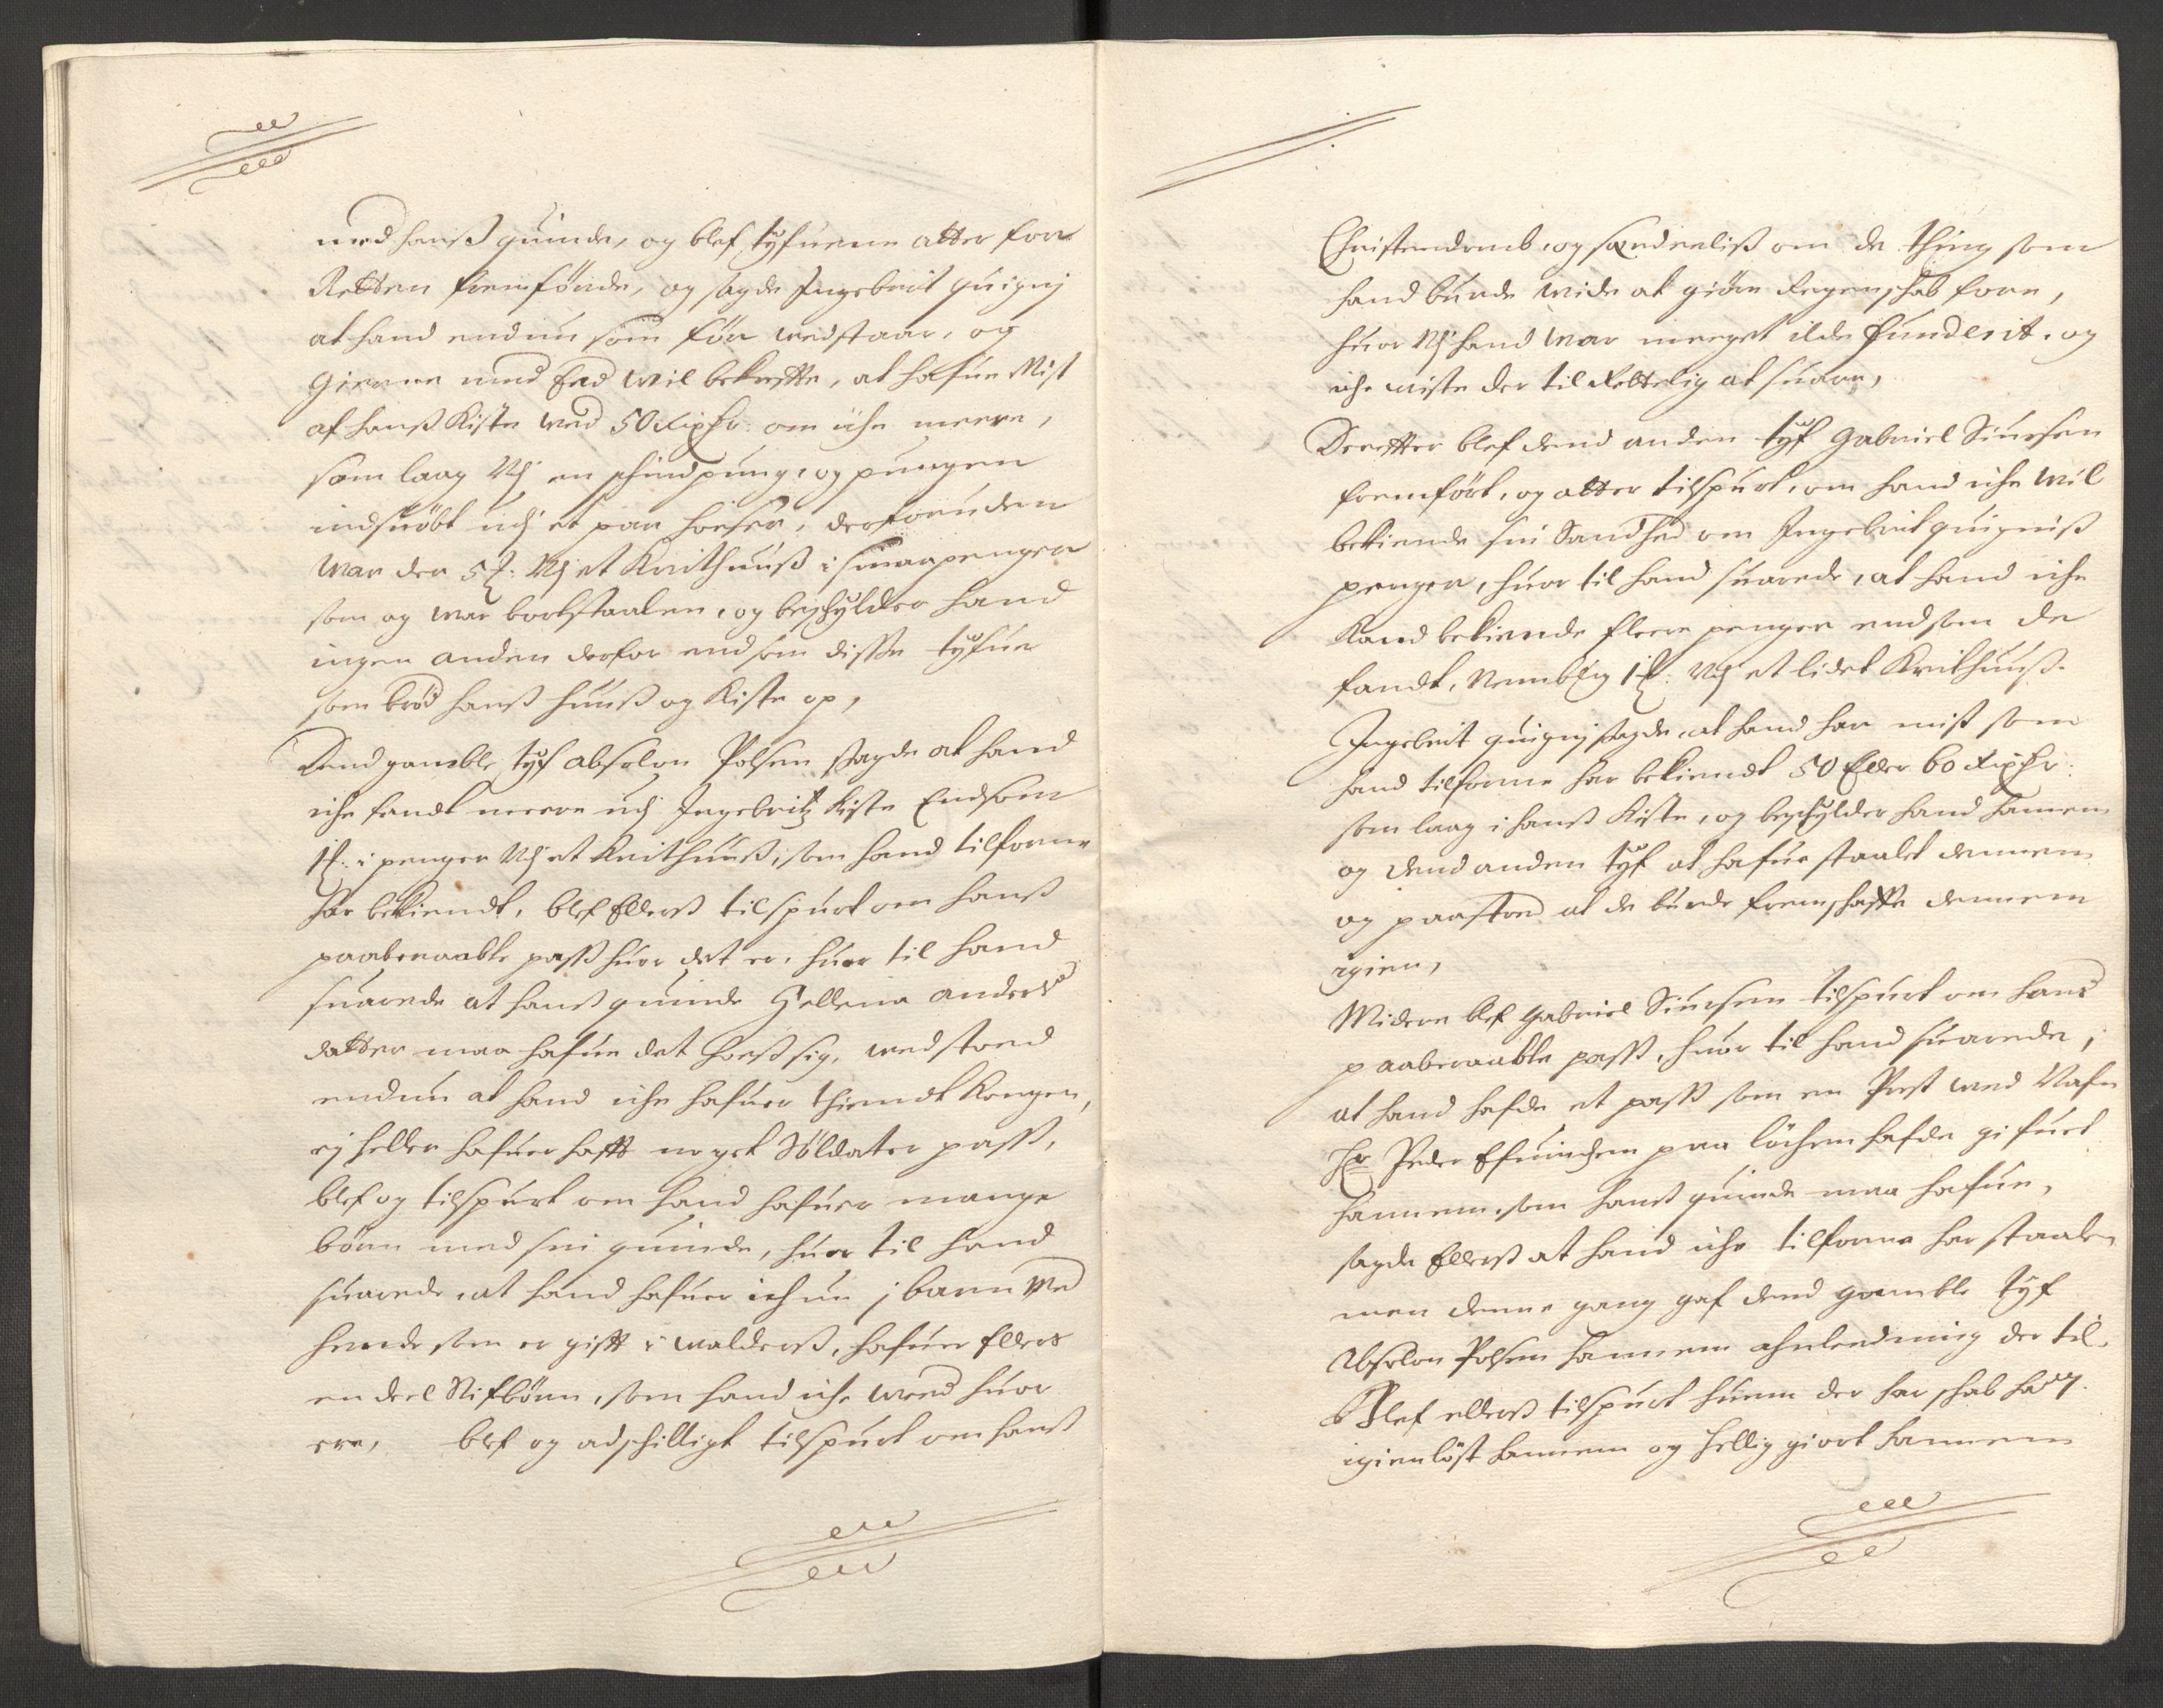 med hanß quinde, og blef tyfuene atter for
Retten fremførde, og sagde Ingebrit quigni
at hand endnu som før wedstaar, og
Gierne med Eed wil bekrefte, at hafue Mist
af hanß Kiste wed 50 Rixdr: om iche meere,
som laag Udj en schindpung, og pungen
indsuøbt udj et par hoeser, desforuden
War der 5 Udj et Knithuuß i smaapenger
som og war bortstaalen, og beschylder hand
ingen anden derfor end som disse tyfue
som brød hanß huuß og Kiste op,
Dend gamble tyf Absolon Polsen sagde at hand
iche fandt meere udj Ingebritz Kiste Endsom
1 i penger Udj et Knithuuß, som hand tilforne
har bekiendt, blef Ellerß tilspurt om hanß
paaberaabte paß huor det er, huor til hand
suarede at hanß quinde Hellena Anders
datter maa hafue det hoeß sig, wedstoed
endnu at hand iche hafuer thiendt Kongen,
ej heller hafuer hafft noget Soldater paß,
blef og tilspurt om hand hafuer mange
børn med sin quinde, huor til hand
suarede, at hand hafuer ichun j barn Med
hende som er gifft i walderß, hafuer Ellers
en deel Stifbørn, som hand iche weed huor
ere, blef og adschilligt tilspurt om hanß
Christendomb, og særdeeliß om de thing som
hand burde wide at giøre Regenschab fore,
huor Udj hand War meeget ilde funderit, og
iche wiste der til Rettelig at suare,
Derefter blef dend anden tyf Gabriel Siursen
fremført, og atter tilspurt, om hand iche wil
bekiende sin Sandhed om Ingebrit quigniß
penger, huor til hand suarede, at hand iche
Kand bekiende fleere penger end som de
fandt, Nemblig 1 Udj et lidet Knithuuß.
Ingebrit quigni sagde, at hand har mist som
hand tilforne har bekiendt 50 Eller 60 Rixdr:
som laag i hanß Kiste, og beschylder hand hannem
og dend anden tyf at hafue staalet dennem
og paastoed at de burde fremschaffe dennem
igien,
Widere blef Gabriel Siursen tilspurt om hans
paaberaabte paß, huor til hand suarede,
at hand hafde et paß som en Prest wed Nafn
Hr Peder paa hafde gifuet
hannem, som hanß quinde maa hafue,
sagde Ellerß at hand iche tilforne har staalen
men denne gang gaf dend gamble tyf
Absolon Polsen hannem ahnleedning der til.
Blef ellerß tilspurt huem der har schab
igienløst hannem og hellig giort hannem